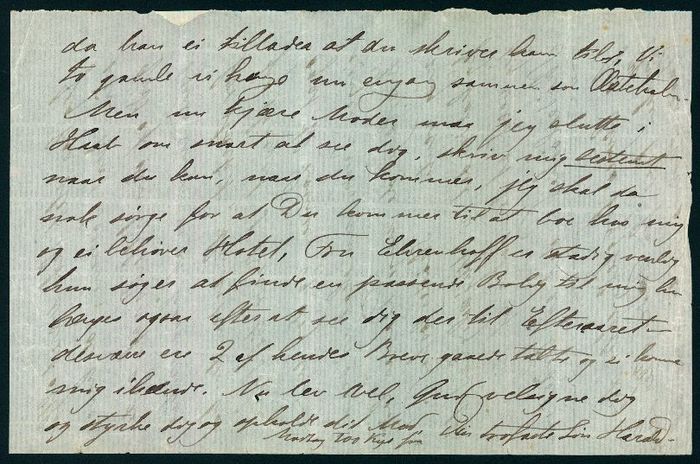 da han ei tillader at du skriver ham til, Vi
to gamle vi hage nu engang sammen som
Men nu kjære Moder maa jeg slutte i
Haab om snart at see dig, skriv mig bestemt
naar du kan, naar du kommer, jeg skal da
nok sørge for at Du kommer til at boe hos mig
og ei behøver Hotel, Fru Ehrenhoff er stadig venlig
hun søger at finde en passende Bolig til mig hun
længes ogsaa efter at see dig der til Efteraaret
desværre ere 2 af hendes Breve gaaede tabte og ei komne
mig ihænde. Nu lev vel, Gud velsigne dig
og styrke dig og opholde dit Mod
Modtag 100 Kys fra Din trofaste Søn Harald